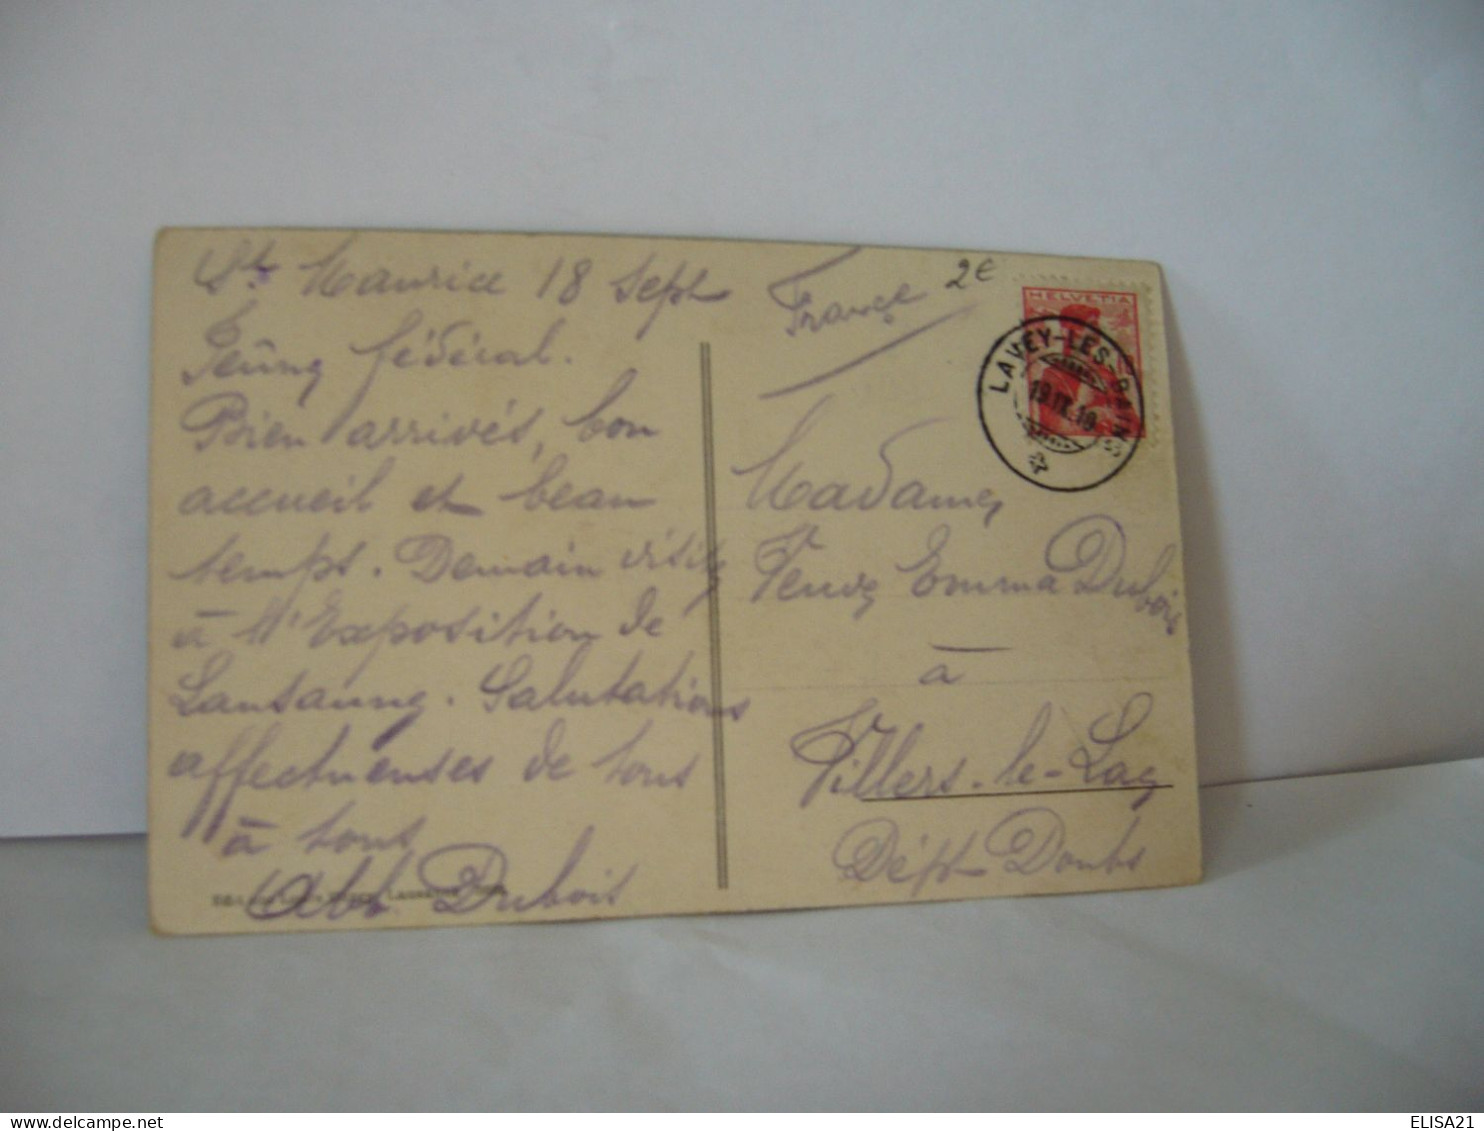 St Maurice 18 Sept
Jeûne fédéral.
Bien arrivés, bon
accueil et beau
temps. Demain visite
à l'Exposition de
Lausanne. Salutations
affectueuses de tous
à tous
Abb. Dubois
France
2€
HELVETIA
LAVEY-LES-BAINS
19.IX.10
Madame
Veuve Emma Dubois
à
Villers-le-Lac
Dépt Doubs
ELISA21